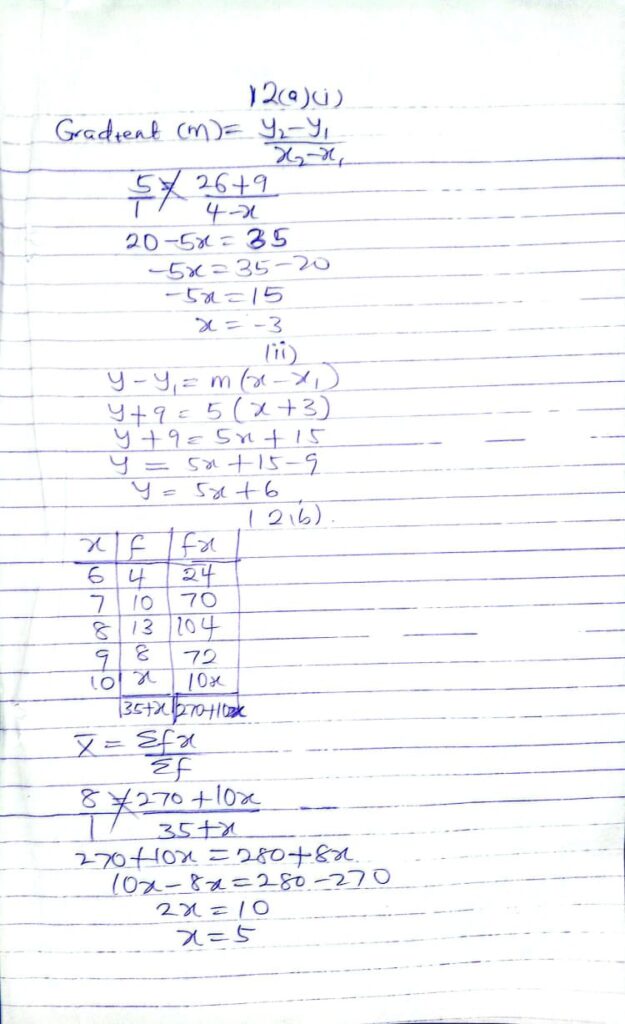 12(a)(i)
Gradient (m) = y₂-y₁
x₂-x₁
5 = 26+9
1 4-x
20-5x = 35
-5x = 35-20
-5x = 15
x = -3
(ii)
y-y₁ = m(x-x₁)
y+9 = 5(x+3)
y+9 = 5x+15
y = 5x+15-9
y = 5x+6
12(b).
x f fx
6 4 24
7 10 70
8 13 104
9 8 72
10 x 10x
35+x 270+10x
x̄ = Σfx
Σf
8 = 270+10x
1 35+x
270+10x = 280+8x
10x-8x = 280-270
2x = 10
x = 5